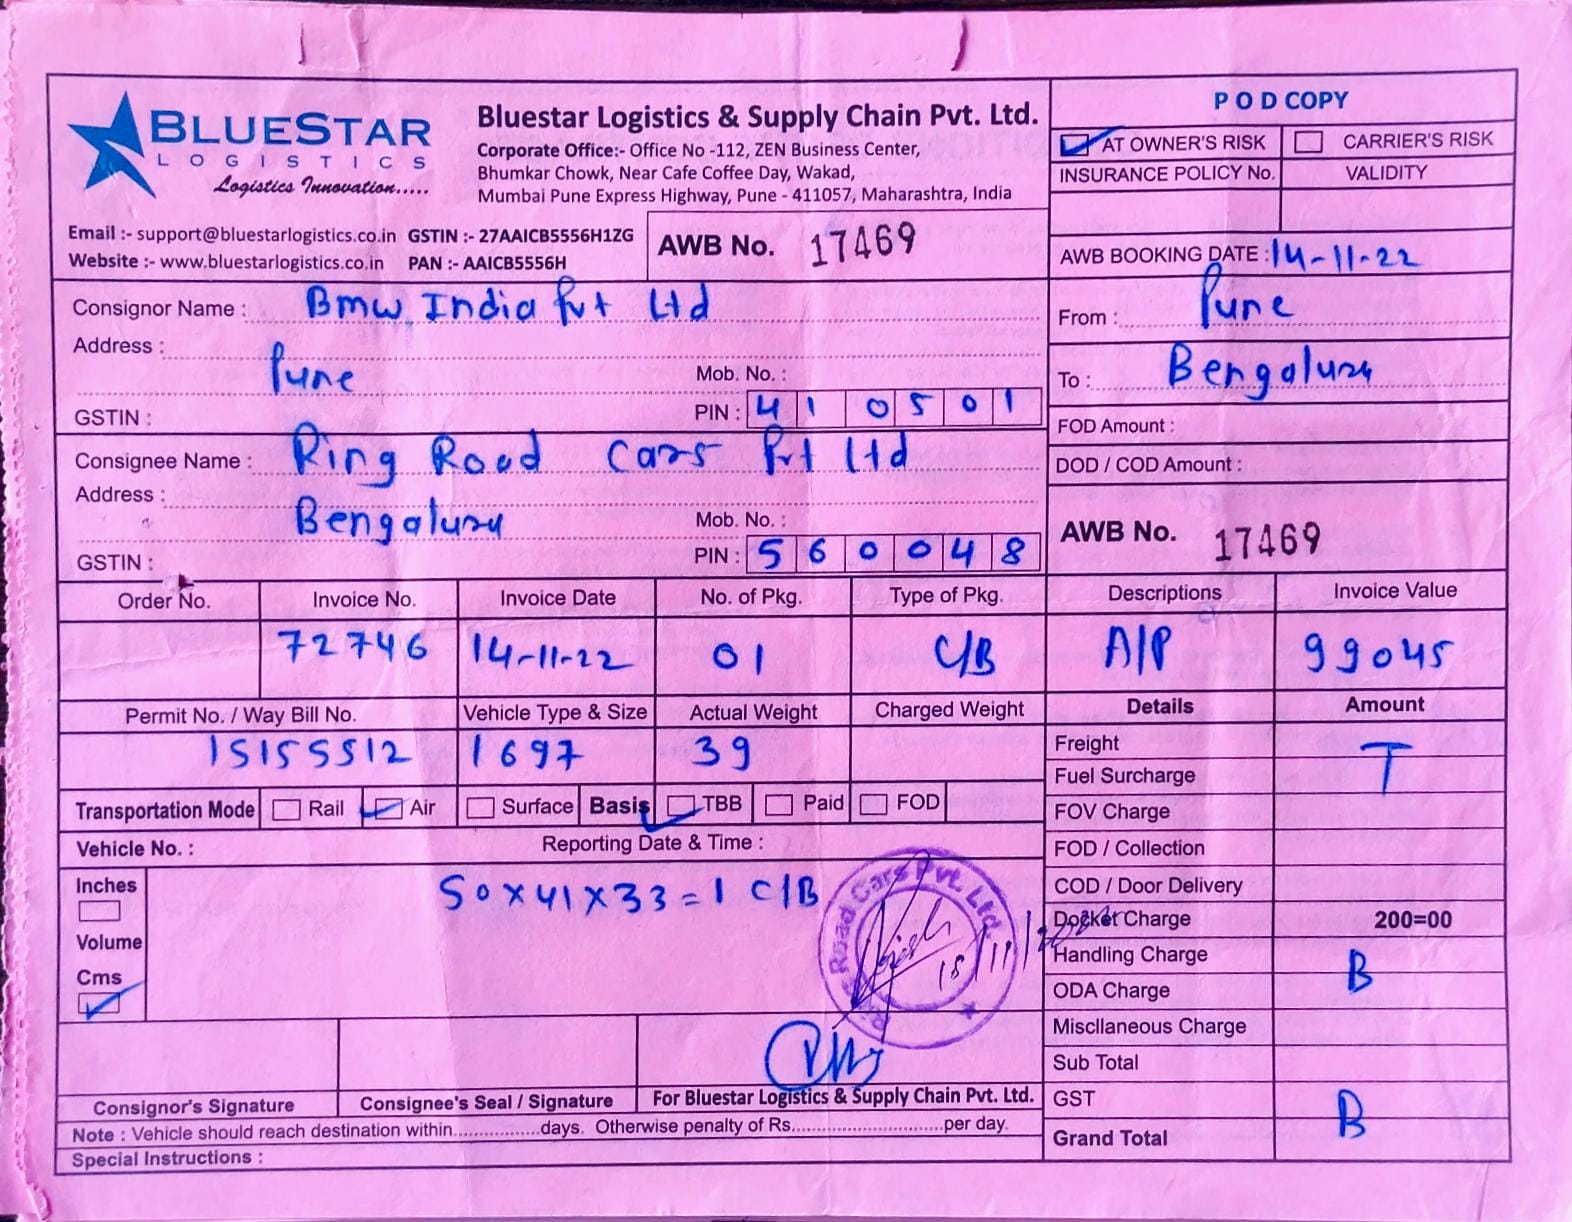 BLUESTAR
LOGISTICS
Logistics Innovation.....
Bluestar Logistics & Supply Chain Pvt. Ltd.
Corporate Office:- Office No -112, ZEN Business Center,
Bhumkar Chowk, Near Cafe Coffee Day, Wakad,
Mumbai Pune Express Highway, Pune - 411057, Maharashtra, India
Email :- support@bluestarlogistics.co.in GSTIN :- 27AAICB5556H1ZG
Website :- www.bluestarlogistics.co.in PAN :- AAICB5556H
AWB No. 17469
P O D COPY
AT OWNER'S RISK CARRIER'S RISK
INSURANCE POLICY No. VALIDITY
AWB BOOKING DATE : 14-11-22
Consignor Name : Bmw India Pvt Ltd
Address :
Pune Mob. No. :
GSTIN : PIN : 410501
From : Pune
To : Bengaluru
FOD Amount :
DOD / COD Amount :
Consignee Name : Ring Road Cars Pvt Ltd
Address :
Bengaluru Mob. No. :
GSTIN : PIN : 560048
AWB No. 17469
Order No. Invoice No. Invoice Date No. of Pkg. Type of Pkg. Descriptions Invoice Value
72746 14-11-22 01 C/B A/P 99045
Permit No. / Way Bill No. Vehicle Type & Size Actual Weight Charged Weight Details Amount
15155512 1697 39
Freight T
Fuel Surcharge
Transportation Mode Rail Air Surface Basis TBB Paid FOD
FOV Charge
Vehicle No. : Reporting Date & Time :
FOD / Collection
Inches
Volume
Cms
50x41x33=1 C/B
Road Cars Pvt. Ltd.
15/11/
COD / Door Delivery
Docket Charge 200=00
Handling Charge B
ODA Charge
Miscllaneous Charge
Sub Total
GST B
Grand Total
Consignor's Signature Consignee's Seal / Signature For Bluestar Logistics & Supply Chain Pvt. Ltd.
Note : Vehicle should reach destination within.................days. Otherwise penalty of Rs..............................per day.
Special Instructions :